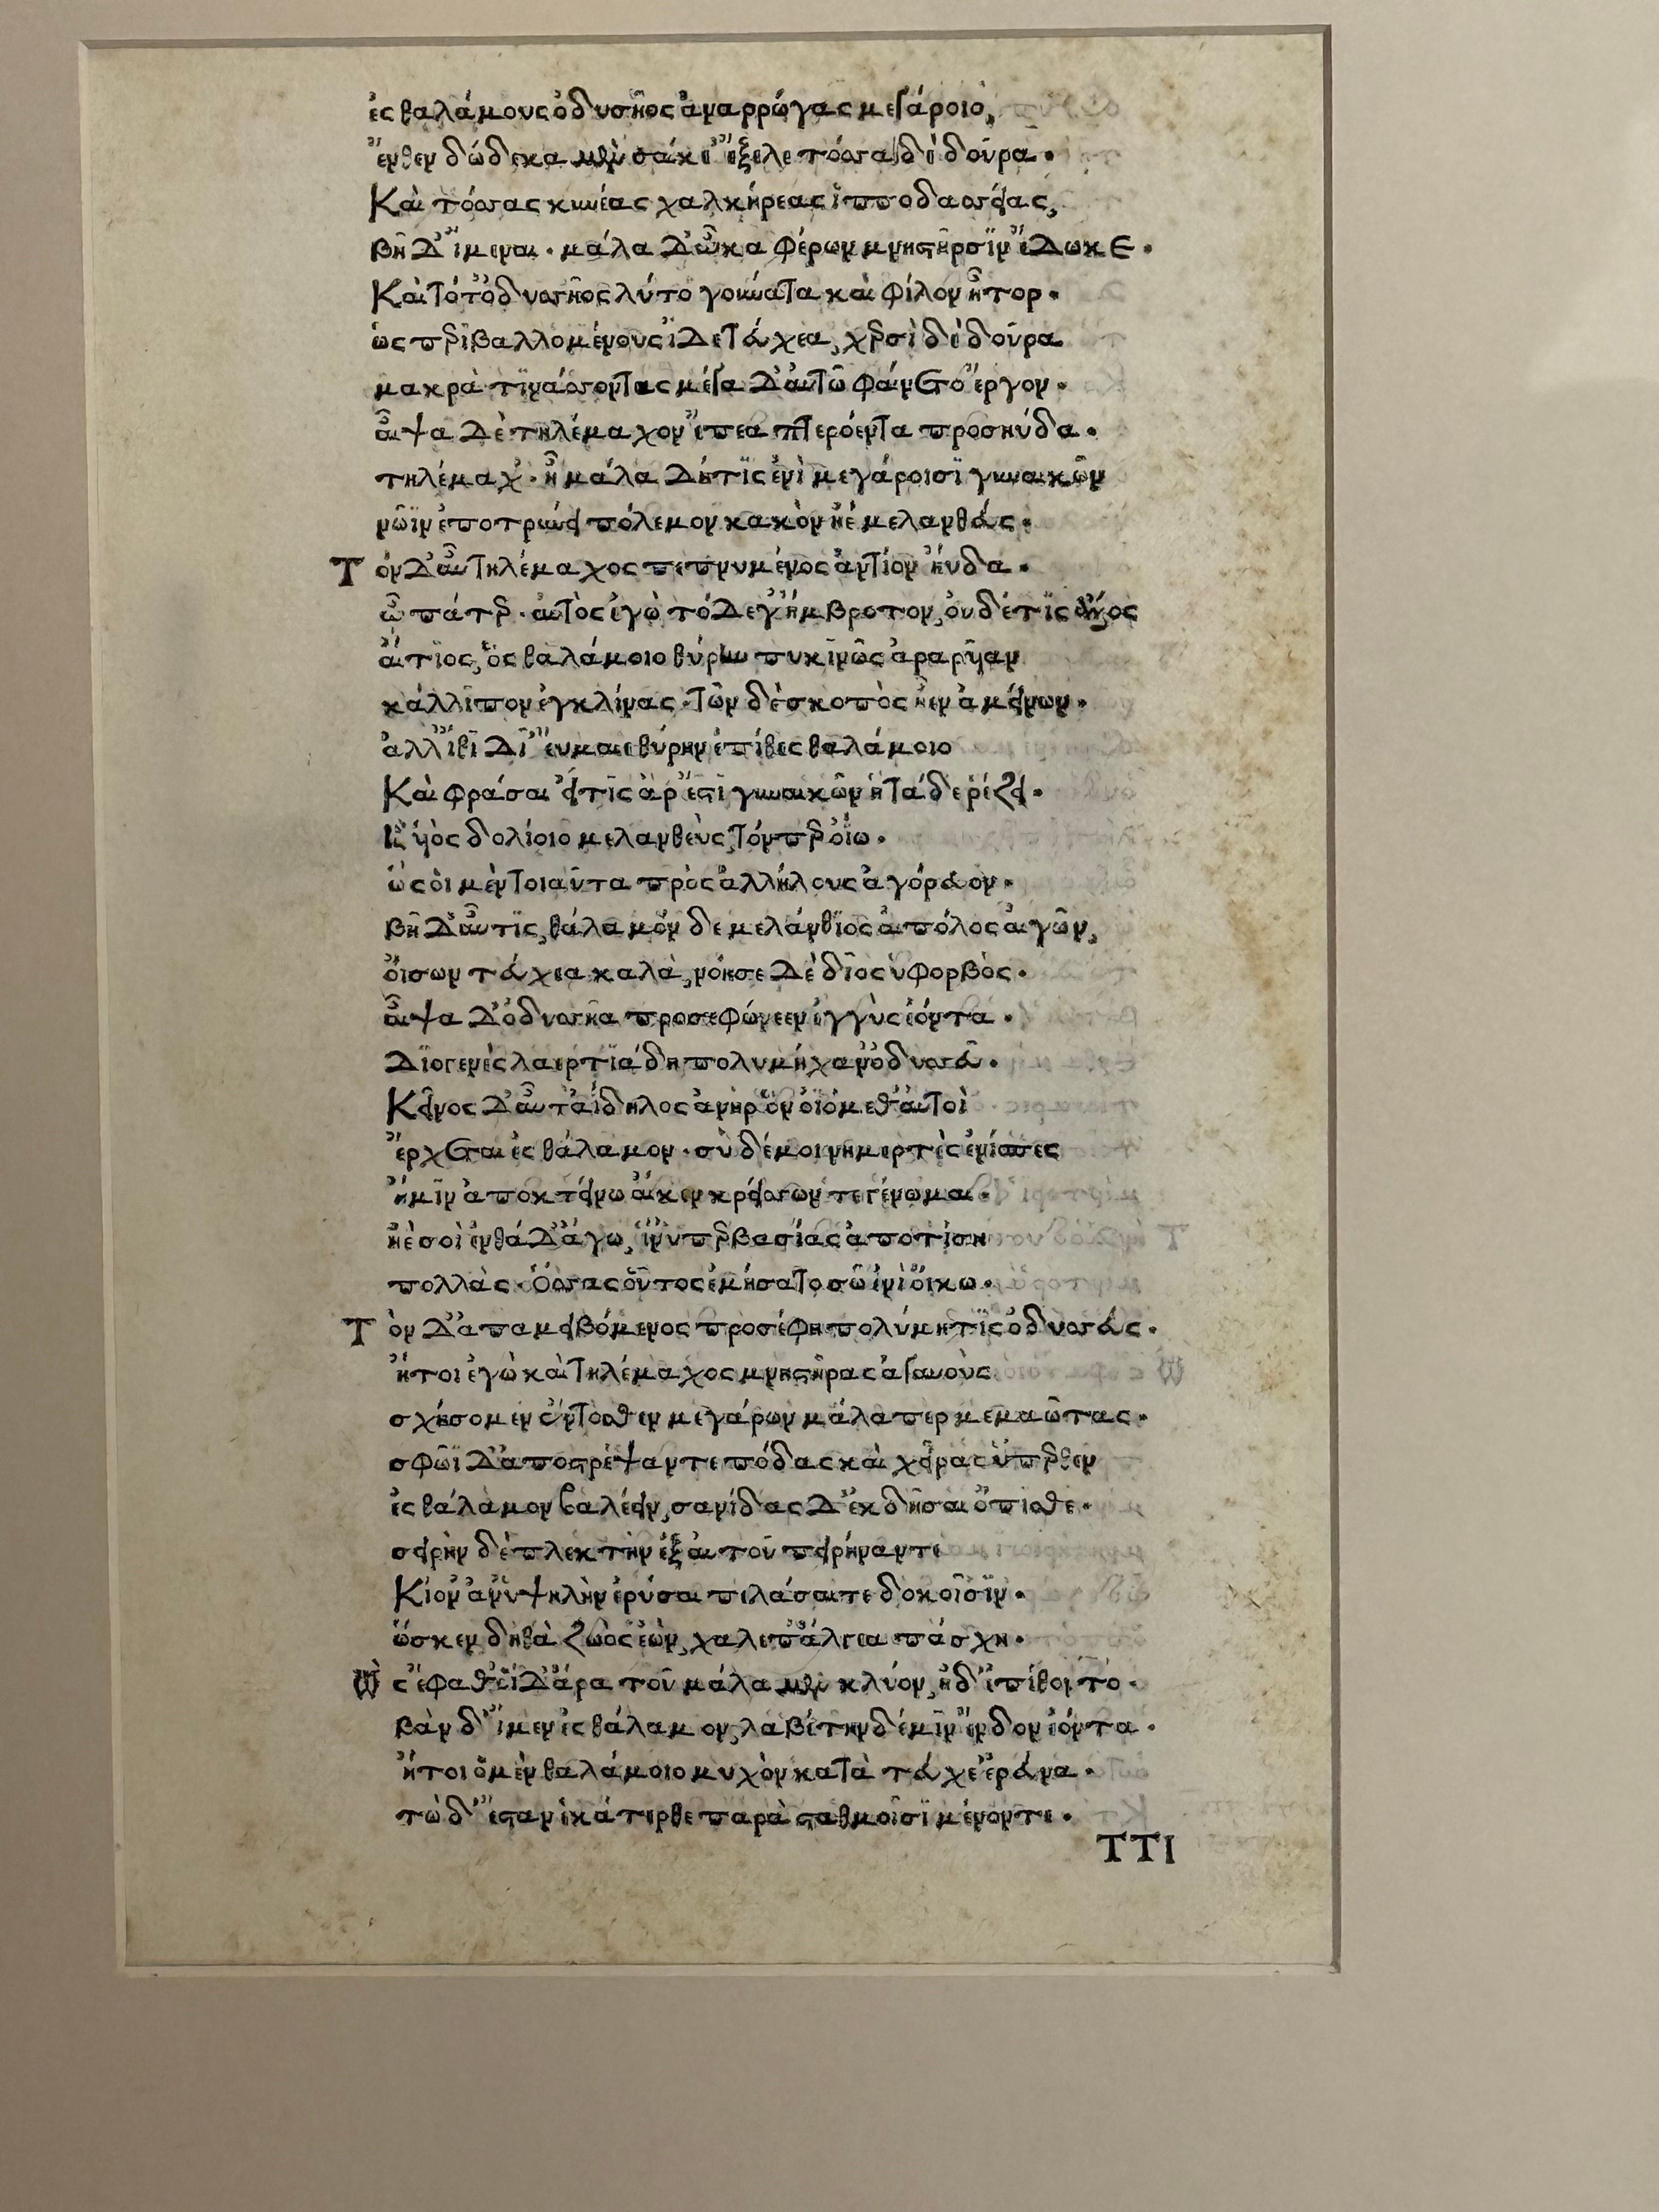 ἐς θαλάμους ὀδυσῆος ἀναρρώγας μεγάροιο,
ἔνθεν δώδεκα μὲν σάκε' ἔξελε τόσσα δὲ δοῦρα.
Καὶ τόσσας κυνέας χαλκήρεας ἱπποδασείας,
βῆ δ' ἴμεναι. μάλα δ' ὦκα φέρων μνηστῆρσϊν ἔδωκε.
Καὶ τότ' ὀδυσσῆος λύτο γούνατα καὶ φίλον ἦτορ.
ὡς περιβαλλομένους ἴδε τεύχεα, χερσὶ δὲ δοῦρα
μακρὰ τϊνάσσοντας μέγα δ' αὐτῶ φαίνετο ἔργον.
αἶψα δὲ τηλέμαχον ἔπεα πτερόεντα προσηύδα.
τηλέμαχ'. ἦ μάλα δή τϊς ἐνὶ μεγάροισϊ γυναικῶν
νῶϊν ἐποτρύνει πόλεμον κακὸν ἠὲ μελανθεύς.
Τὸν δ' αὖ τηλέμαχος πεπνυμένος ἀντίον ηὔδα.
ὦ πάτερ. αὐτὸς ἐγὼ τό δέ γ' ἤμβροτον, οὐδέ τϊς ἄλλος
αἴτϊος, ὃς θαλάμοιο θύρην πυκϊνῶς ἀραρῆαν
κάλλϊπον ἐγκλίνας. τῶν δὲ σκοπὸς ἦεν ἀμείνων.
ἀλλ' ἴθϊ δῖ' εὔμαιε θύρην ἐπίθες θαλάμοιο
Καὶ φράσαι εἴ τϊς ἄρ' ἐστὶ γυναικῶν ἣ τάδε ῥέζει.
ἢ υἱὸς δολίοιο μελανθεὺς, τόν περ ὀΐω.
ὡς οἱ μὲν τοιαῦτα πρὸς ἀλλήλους ἀγόρευον.
βῆ δ' αὖτϊς, θάλαμόν δε μελάνθϊος αἰπόλος αἰγῶν,
οἴσων τεύχεα καλὰ, νόησε δὲ δῖος ὑφορβὸς.
αἶψα δ' ὀδυσσῆα προσεφώνεεν ἐγγὺς ἐόντα.
Δϊογενὲς λαερτϊάδη πολυμήχαν' ὀδυσσεῦ.
Κεῖνος δ' αὖτ' ἀΐδηλος ἀνὴρ ὃν ὀϊόμεθ' αὐτοὶ
ἔρχεται ἐς θάλαμον. σὺ δέ μοι νημερτὲς ἐνίσπες
ἤ μϊν ἀποκτείνω αἴ κεν κρείσσων γε γένωμαι.
ἠὲ σοὶ ἐνθάδ' ἄγω, ἵν' ὑπερβασίας ἀποτίση
πολλὰς. ὅσσας οὗτος ἐμήσατο σῶ ἐνὶ οἴκω.
Τὸν δ' ἀπαμειβόμενος προσέφη πολύμητϊς ὀδυσσεύς.
ἤτοι ἐγὼ καὶ τηλέμαχος μνηστῆρας ἀγαυοὺς
σχήσομεν ἔντοσθεν μεγάρων μάλα περ μεμαῶτας.
σφῶϊ δ' ἀποστρέψαντε πόδας καὶ χεῖρας ὕπερθεν
ἐς θάλαμον βαλέειν, σανίδας δ' ἐκδῆσαι ὄπισθε.
σειρὴν δὲ πλεκτὴν ἐξ αὐτοῦ πειρήναντε
Κίον' ἀν' ὑψηλὴν ἐρύσαι πελάσαι τε δοκοῖσϊν.
ὥς κεν δηθὰ ζωὸς ἐὼν, χαλέπ' ἄλγεα πάσχη.
Ὣς ἔφαθ' οἱ δ' ἄρα τοῦ μάλα μὲν κλύον, ἠδ' ἐπίθοντο.
βὰν δ' ἴμεν ἐς θάλαμον, λαθέτην δέ μϊν ἔνδον ἐόντα.
ἤτοι ὁ μὲν θαλάμοιο μυχὸν κατὰ τεύχε' ἐρεύνα.
τὼ δ' ἔσταν ἑκάτερθε παρὰ σταθμοῖσϊ μένοντε.
ΤΤΙ